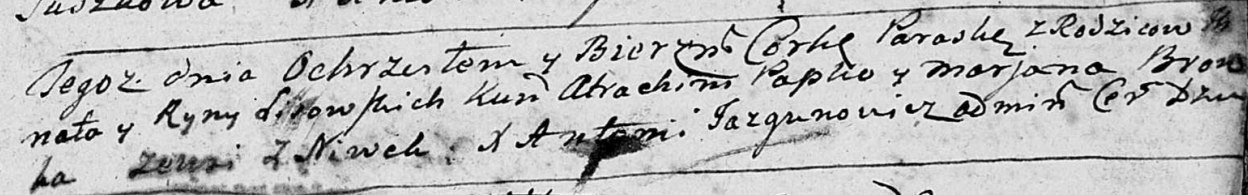 Tegoż dnia Ochrzestem y Bierzm̃ Corkę Paraskę z Rodzicow
nata y Ryny Lisowskich Kum̃ Atrachim Papko y Marjana Bron
ka zewsi z Niwek. X Antoni Jazgunowicz admiñ Cer̃